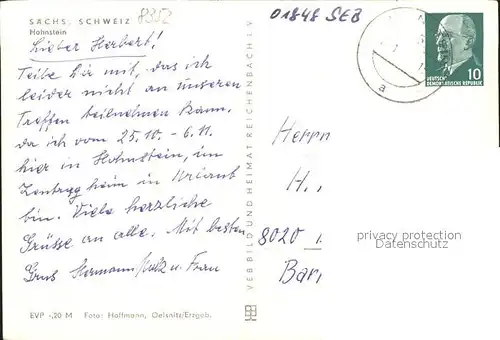 SÄCHS. SCHWEIZ 8352
Hohnstein
01848 SEB
Lieber Herbert!
Teile Dir mit, das ich
leider nicht an unseren
Treffen teilnehmen kann,
da ich vom 25.10. - 6.11.
hier in Hohnstein, im
heim in Urlaub
bin. Viele herzliche
Grüsse an alle. Mit besten
Grus Hermann u. Frau
EVP -,20 M Foto: Hoffmann, Oelsnitz/Erzgeb.
VEB BILD UND HEIMAT REICHENBACH I. V.
DEUTSCHE
DEMOKRATISCHE REPUBLIK
10
a
Herrn
H.
8020
Bar
privacy protection
Datenschutz